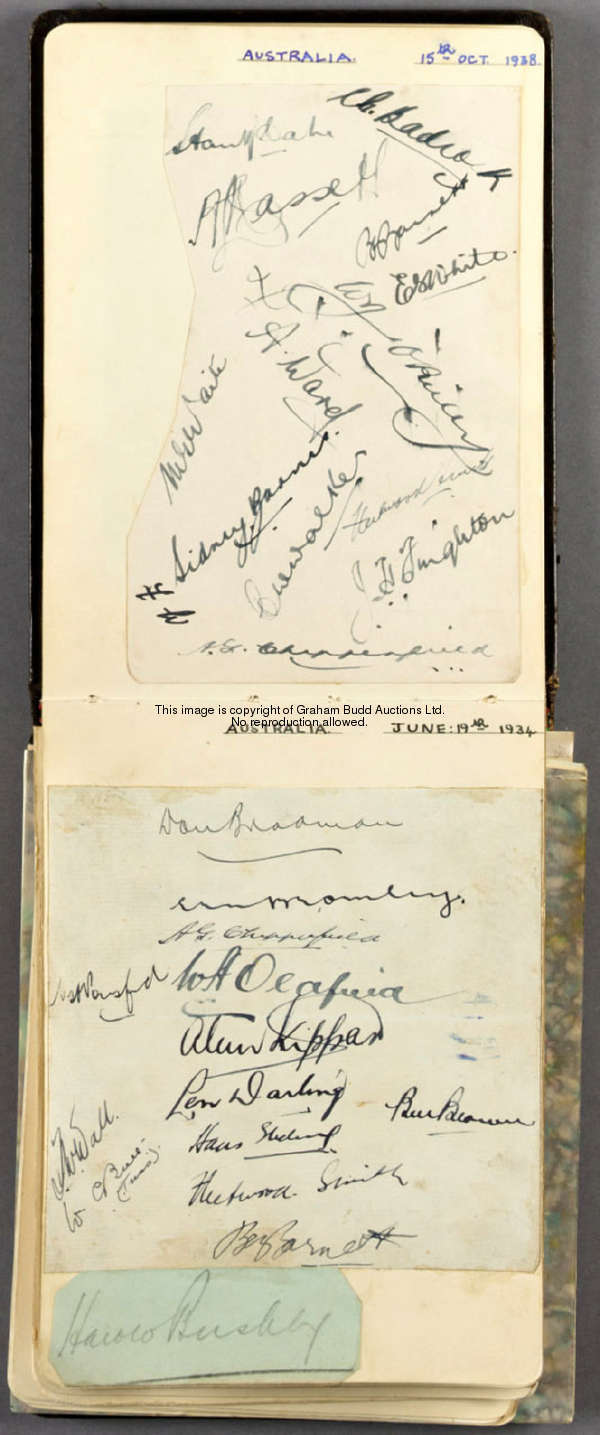 AUSTRALIA. 15TH OCT. 1938.
Ch. Badcock
A. Hassett
B. Barnett
E S White.
F. A. Ward
W J O'Reilly
M G Waite
Sidney G Barnes.
C W Walker
Fleetwood Smith
J. H. Fingleton
A. G. Chipperfield
This image is copyright of Graham Budd Auctions Ltd.
No reproduction allowed.
AUSTRALIA. JUNE: 19TH 1934
Don Bradman
E H Bromley.
A G. Chipperfield
W H Ponsford
W A Oldfield
Alan Kippax
Len Darling
Bill Brown
T. W. Wall.
Hans Ebeling
W C Bull
Fleetwood. Smith
B A Barnett
Harold Bushby